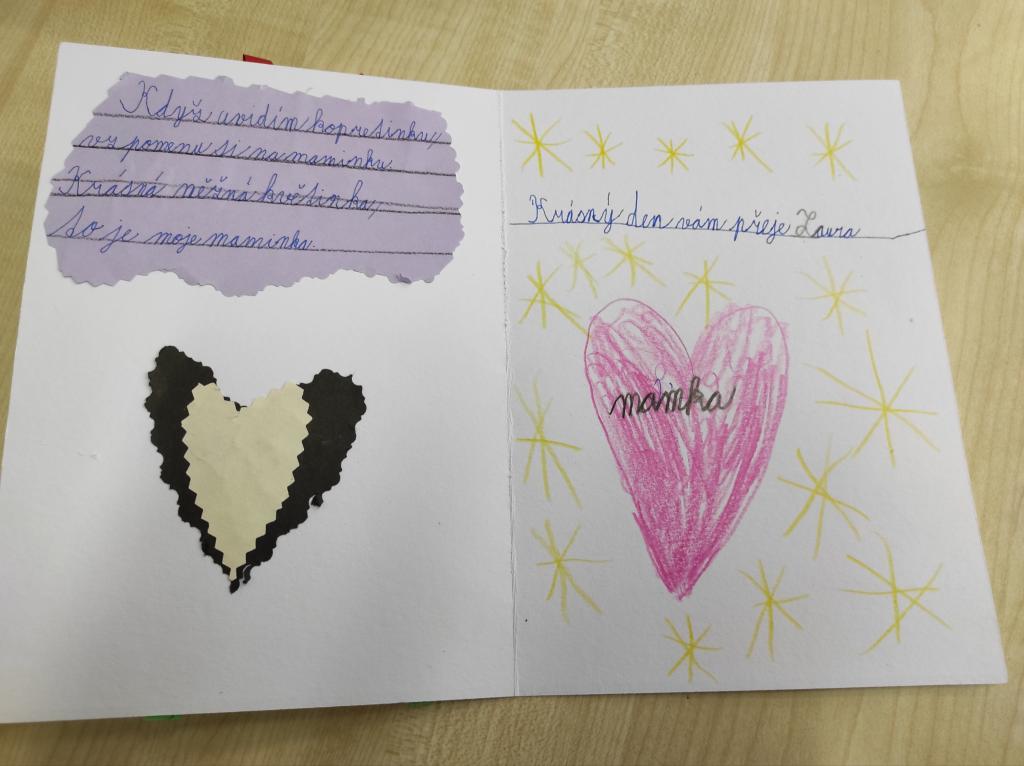 Když uvidím kopretinku,
vz pomenu si na maminku
Krásná něžná květinka,
to je moje maminka.
Krásný den vám přeje Laura
mamka